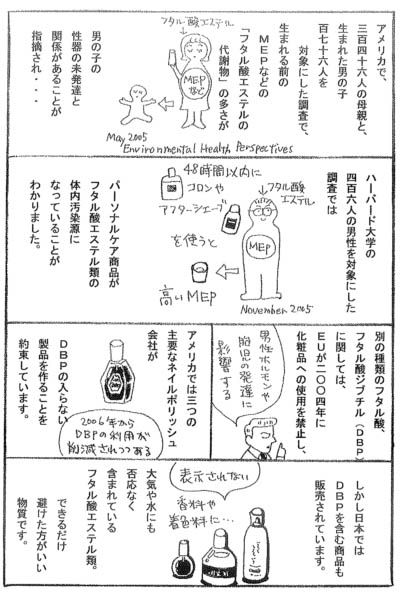 アメリカで、
三百四十六人の母親と、
生まれた男の子
百七十六人を
対象にした調査で、
生まれる前の
MEPなどの
「フタル酸エステルの
代謝物」の多さが
フタル酸エステル
MEP
など
男の子の
性器の未発達と
関係があることが
指摘され・・・
May 2005
Environmental Health Perspectives
ハーバード大学の
四百六人の男性を対象にした
調査では
フタル酸
エステル
MEP
48時間以内に
コロンや
アフターシェーブ
を使うと
高いMEP
November 2005
パーソナルケア商品が
フタル酸エステル類の
体内汚染源に
なっていることが
わかりました。
別の種類のフタル酸、
フタル酸ジブチル(DBP)
に関しては、
EUが二〇〇四年に
化粧品への使用を禁止し、
男性ホルモンや
胎児の発達に
影響する
アメリカでは三つの
主要なネイルポリッシュ
会社が
2006年から
DBPの利用が
削減されつつある
DBPの入らない
製品を作ることを
約束しています。
しかし日本では
DBPを含む商品も
販売されています。
表示されない
香料や
着色料に…
大気や水にも
否応なく
含まれている
フタル酸エステル類。
できるだけ
避けた方がいい
物質です。